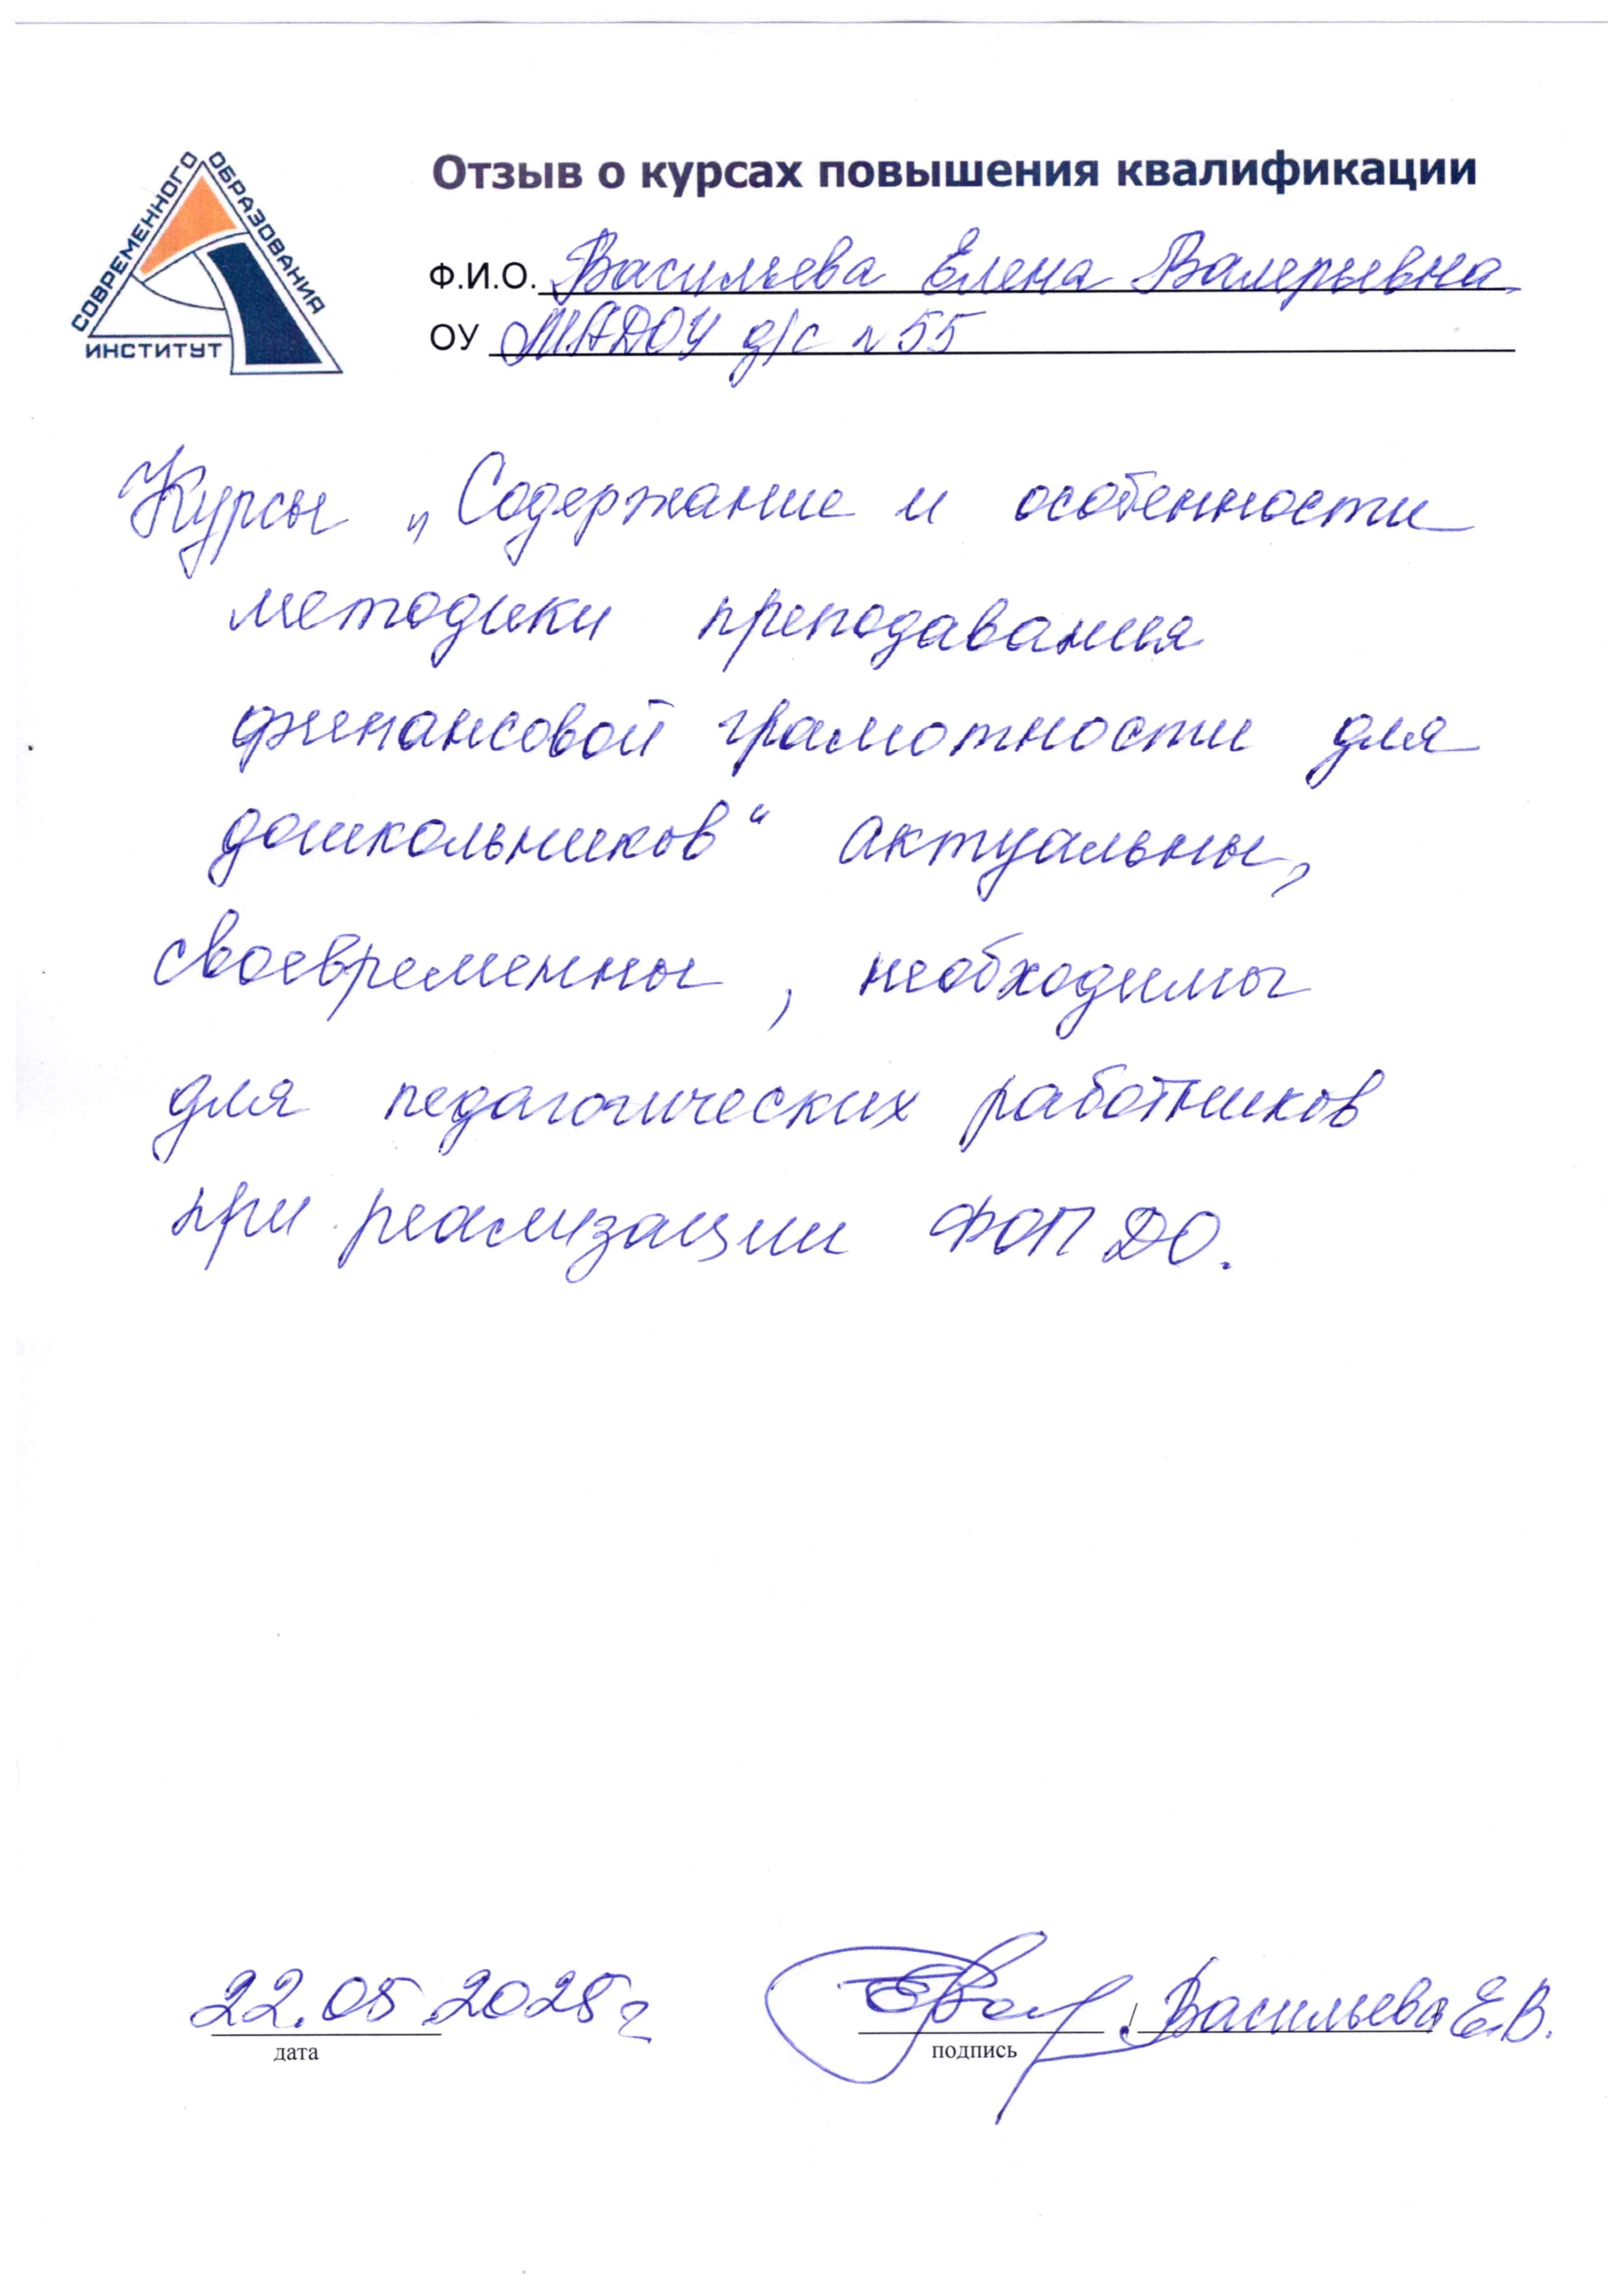 СОВРЕМЕННОГО ОБРАЗОВАНИЯ
ИНСТИТУТ
Отзыв о курсах повышения квалификации
Ф.И.О. Васильева Елена Валерьевна
ОУ МАДОУ д/с №55
Курсы „Содержание и особенности
методики преподавания
финансовой грамотности для
дошкольников“ актуальны,
своевременны, необходимы
для педагогических работников
при реализации ФОП ДО.
22.05.2025г
/ Васильева Е.В.
дата
подпись